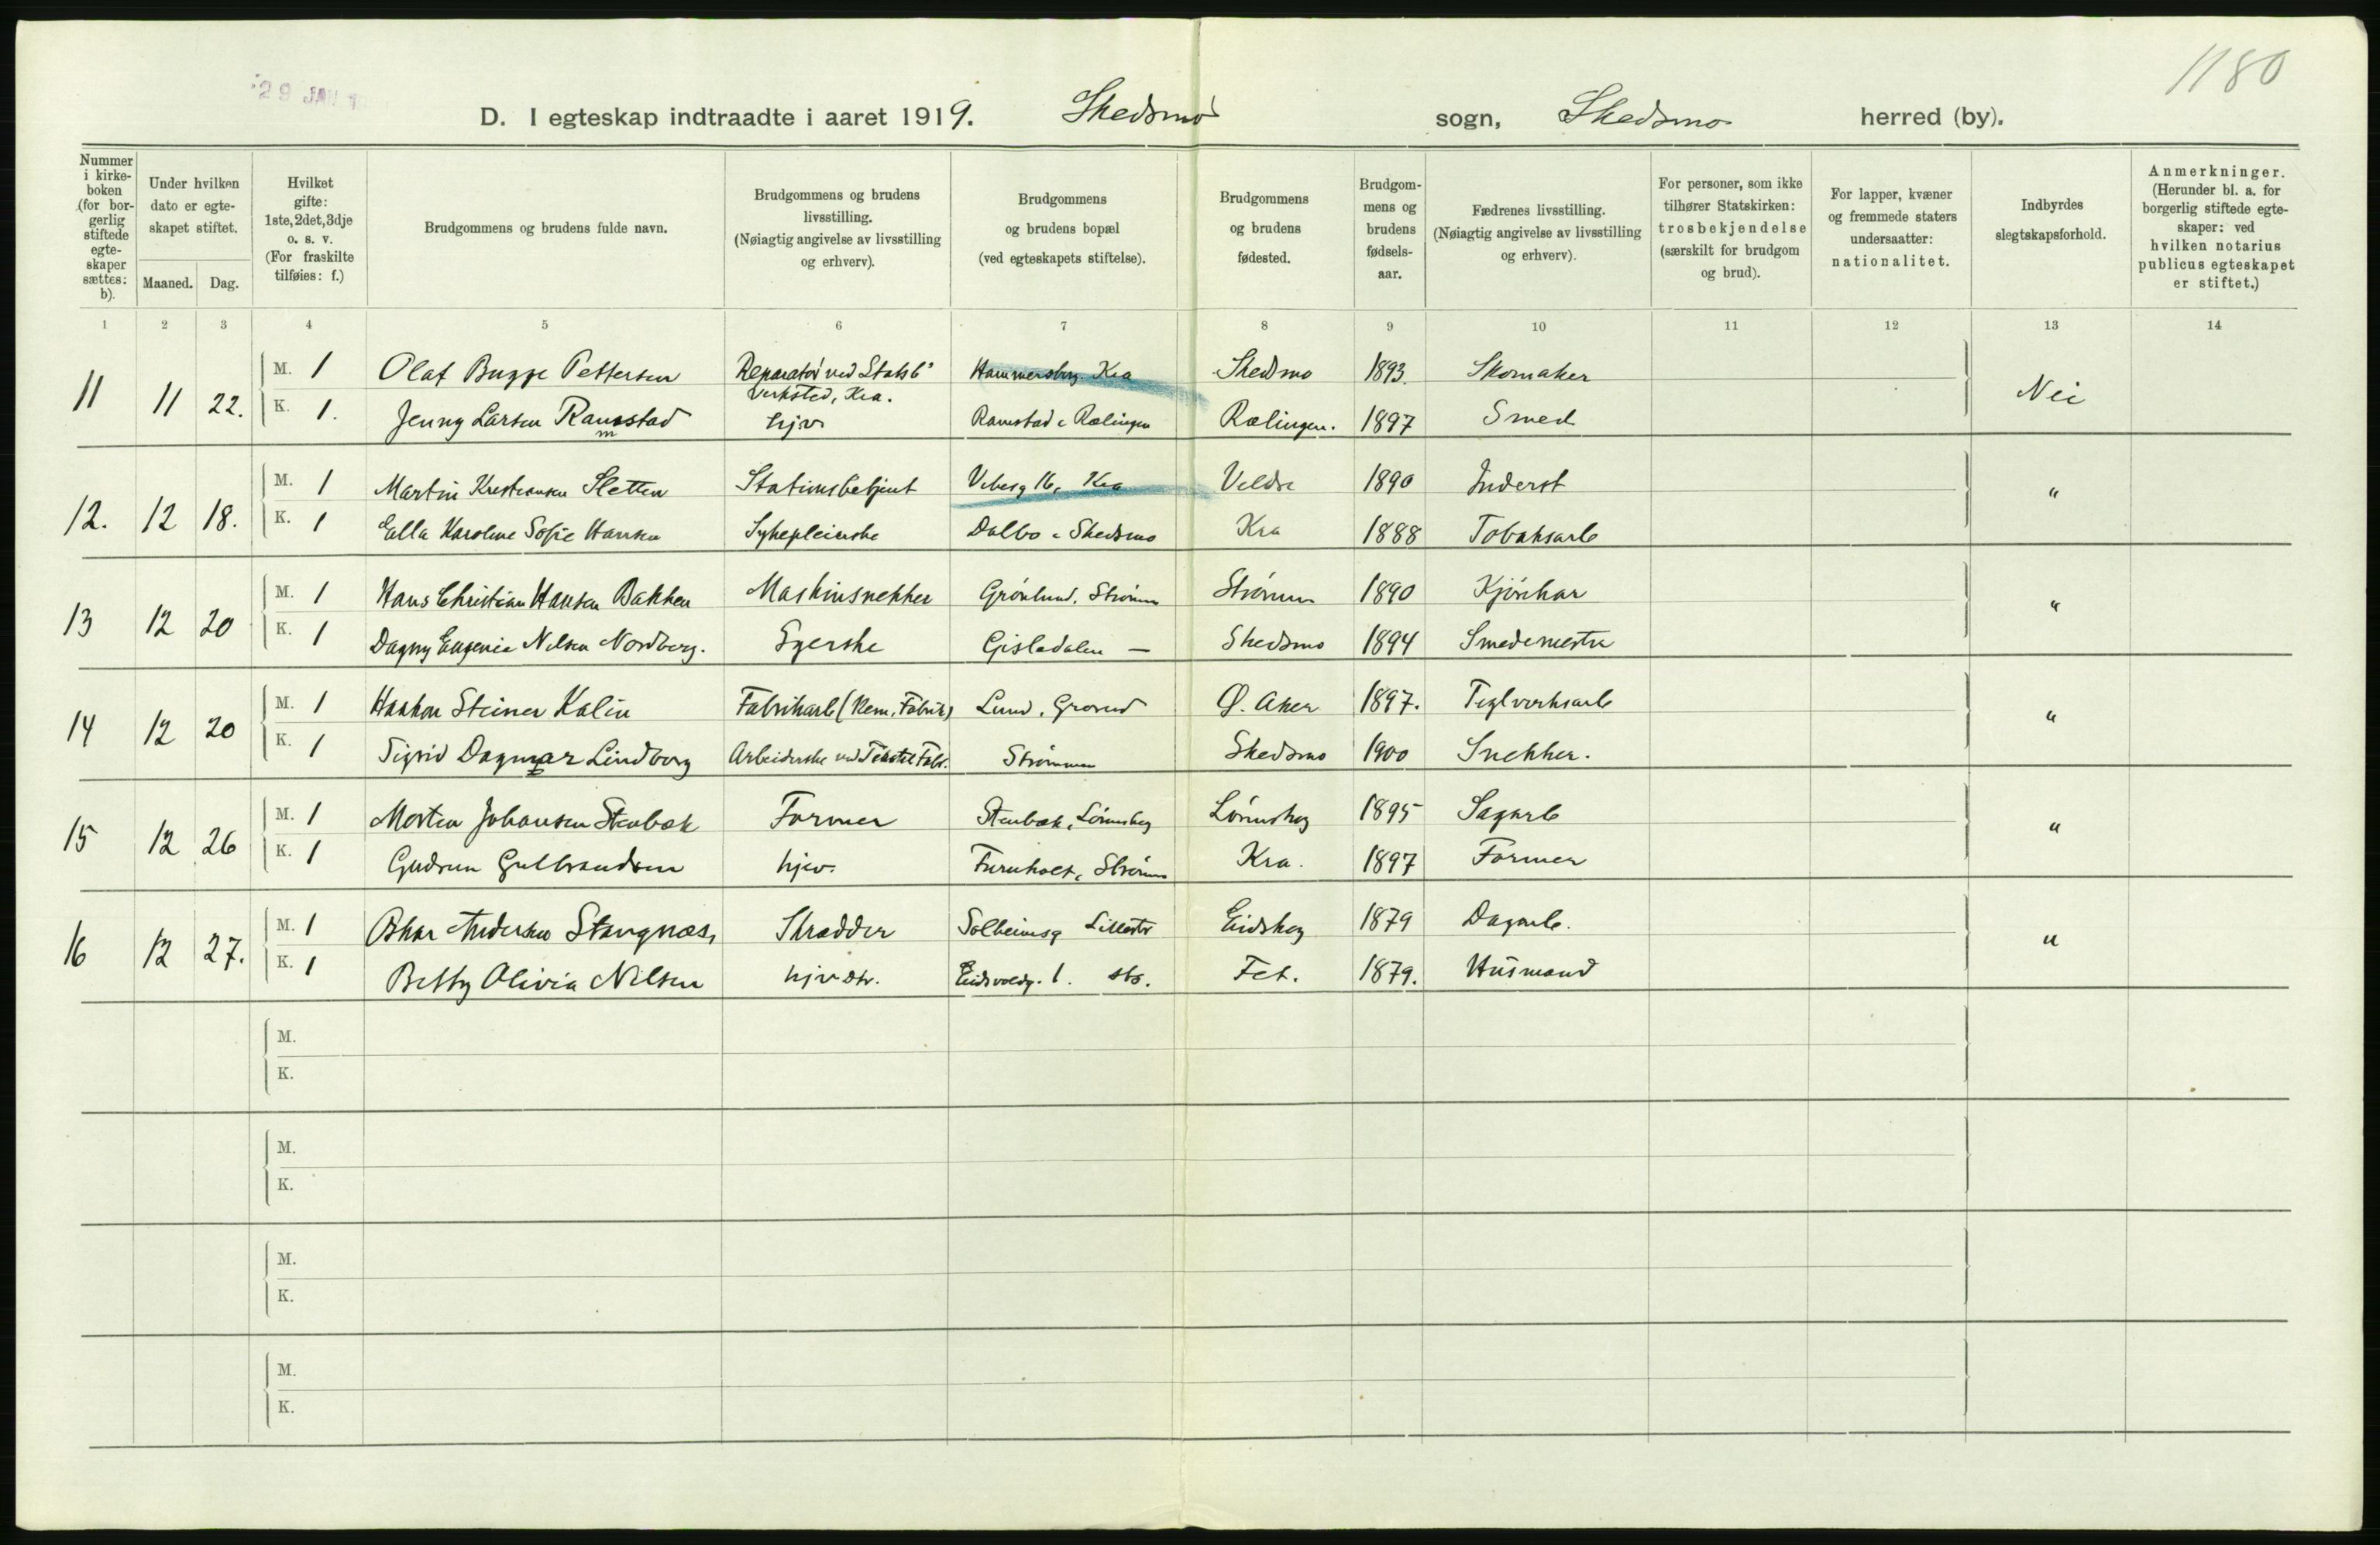 29 JAN 19
1180
D. I egteskap indtraadte i aaret 1919. Skedsmo sogn, Skedsmo herred (by).
Nummer i kirke-boken (for bor-gerlig stiftede egte-skaper sættes: b).
Under hvilken dato er egte-skapet stiftet.
Maaned. Dag.
Hvilket gifte: 1ste, 2det, 3dje o. s. v. (For fraskilte tilføies: f.)
Brudgommens og brudens fulde navn.
Brudgommens og brudens livsstilling. (Nøiagtig angivelse av livsstilling og erhverv).
Brudgommens og brudens bopæl (ved egteskapets stiftelse).
Brudgommens og brudens fødested.
Brudgom-mens og brudens fødsels-aar.
Fædrenes livsstilling. (Nøiagtig angivelse av livsstilling og erhverv).
For personer, som ikke tilhører Statskirken: trosbekjendelse (særskilt for brudgom og brud).
For lapper, kvæner og fremmede staters undersaatter: nationalitet.
Indbyrdes slegtskapsforhold.
Anmerkninger. (Herunder bl. a. for borgerlig stiftede egte-skaper: ved hvilken notarius publicus egteskapet er stiftet.)
1 2 3 4 5 6 7 8 9 10 11 12 13 14
11 11 22. M. 1 Olaf Bugge Pettersen Reparatør ved Statsb. Verksted, Kra. Hammersborg. Kra Skedsmo 1893. Skomaker Nei
K. 1. Jenny Larsen Ramstad hjv Ramstad i Rælingen Rælingen. 1897 Smed
m
12. 12 18. M. 1 Martin Kristiansen Sletten Stationsbetjent Vibesg 16, Kra Veldre 1890 Inderst "
K. 1 Ella Karoline Sofie Hansen Sykepleierske Dalbo i Skedsmo Kra 1888 Tobaksarb
13 12 20 M. 1 Hans Christian Hansen Bakken Maskinsnekker Grønlund, Strømm Strømm 1890 Kjørekar "
K. 1 Dagny Eugenie Nilsen Nordberg. Syerske Gisledalen — Skedsmo 1894 Smedemester
14 12 20 M. 1 Haakon Steiner Kalin Fabrikarb (Kem. Fabrik) Lund, Grorud Ø. Aker 1897. Teglverksarb "
K. 1 Sigrid Dagmar Lindberg Arbeiderske ved Tekstil Fabr. Strømmen Skedsmo 1900 Snekker.
15 12 26 M. 1 Morten Johansen Stenbæk Former Stenbæk, Lørenskog Lørenskog 1895 Sagarb "
K. 1 Gudrun Gulbrandsen hjv. Furuholt, Strømm Kra. 1897 Former
16 12 27. M. 1 Oskar Andersen Stangnæs, Skrædder Solheimsg Lillestr Eidskog 1879 Dagarb. "
K. 1 Betty Olivia Nilsen hjv dtr. Eidsvoldg. 1. sts. Fet. 1879. Husmand
M.
K.
M.
K.
M.
K.
M.
K.